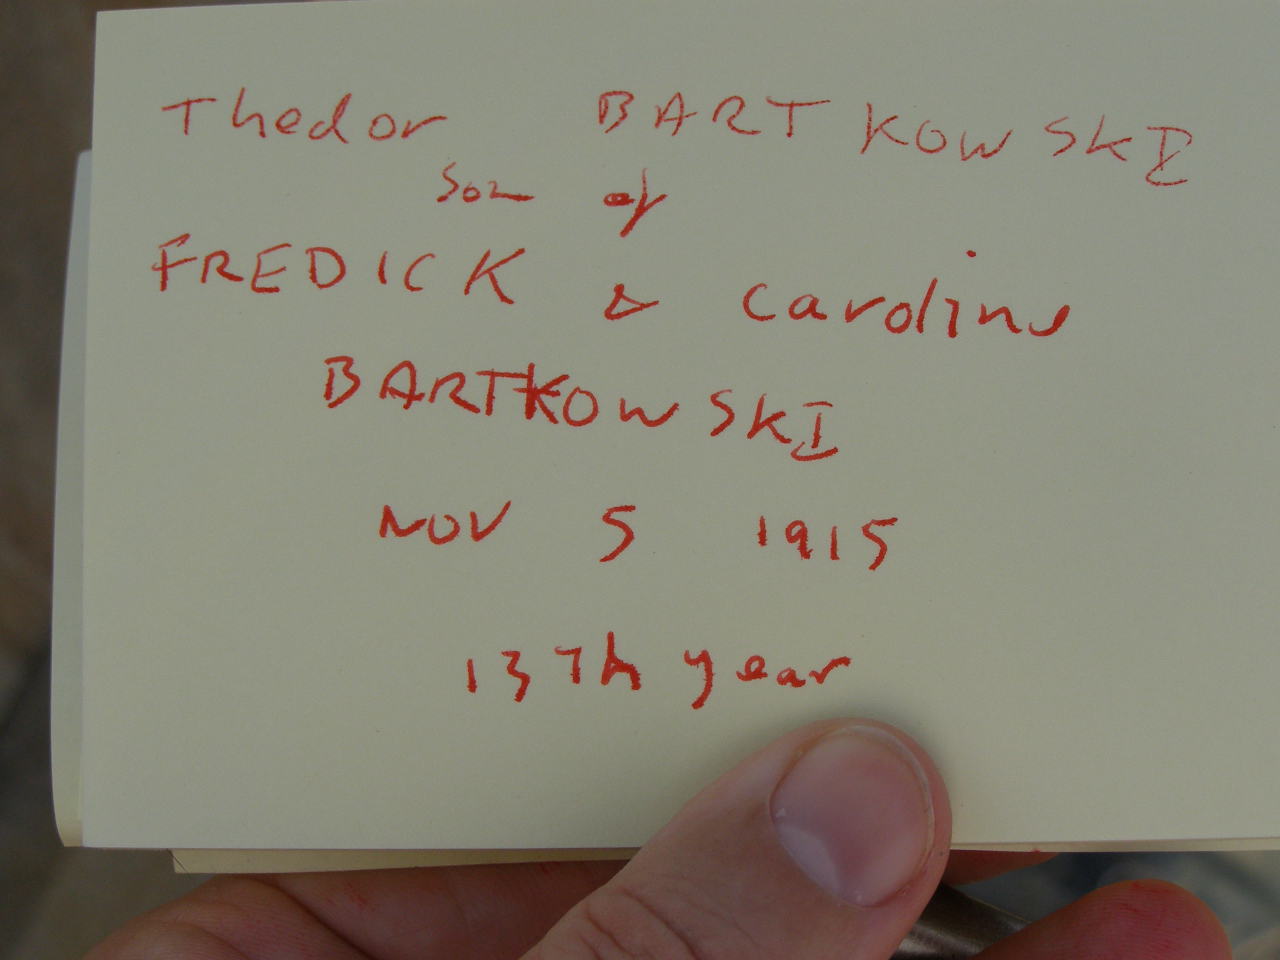 Thedor BARTKOWSKI
son of
FREDICK & Caroline
BARTKOWSKI
NOV 5 1915
13Th year